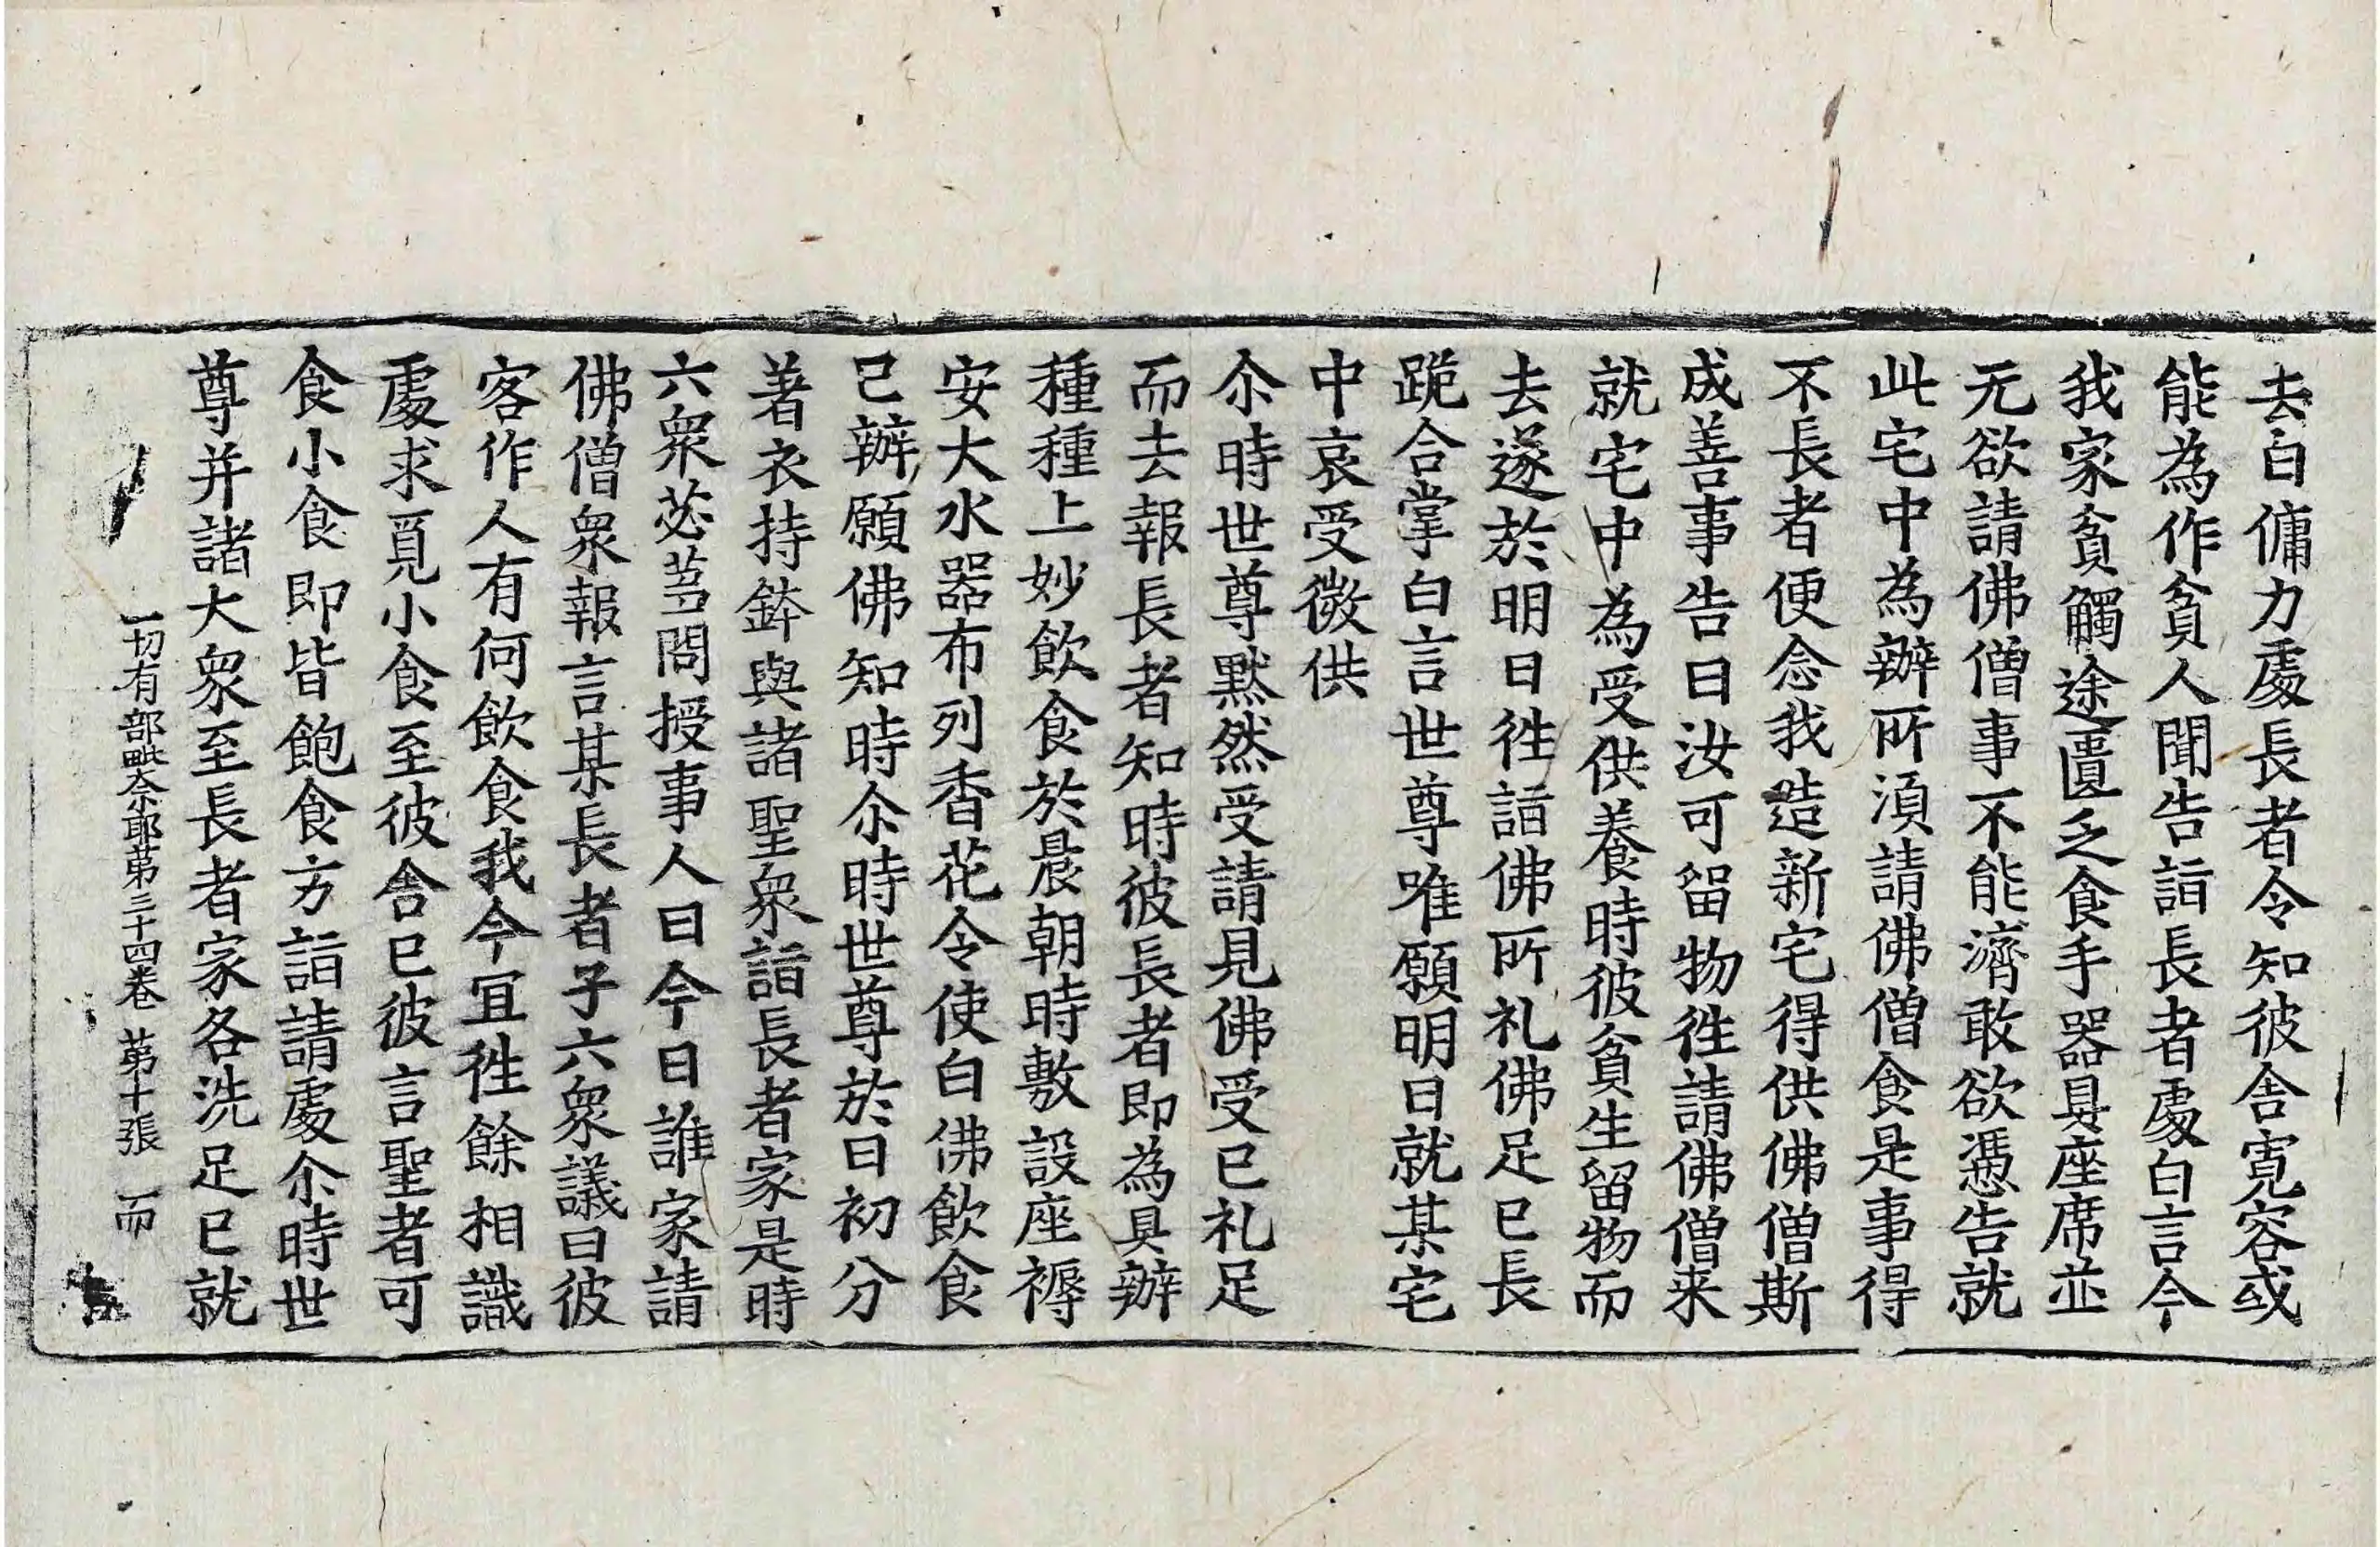 去白傭力處長者令知彼舍寬容或
能為作貧人聞告詣長者處白言今
我家貧觸途匱乏食手器具座席並
无欲請佛僧事不能濟敢欲憑告就
此宅中為辦所湏請佛僧食是事得
不長者便念我造新宅得供佛僧斯
成善事告曰汝可留物徃請佛僧来
就宅中為受供養時彼貧生留物而
去遂於明日徃詣佛所礼佛足已長
跪合掌白言世尊唯願明日就某宅
中哀受微供
尒時世尊默然受請見佛受已礼足
而去報長者知時彼長者即為具辦
種種上妙飲食於晨朝時敷設座褥
安大水器布列香花令使白佛飲食
已辦願佛知時尒時世尊於日初分
著衣持鉢與諸聖衆詣長者家是時
六衆苾芻問授事人曰今日誰家請
佛僧衆報言某長者子六衆議曰彼
客作人有何飲食我今冝徃餘相識
處求覓小食至彼舍已彼言聖者可
食小食即皆飽食方詣請處尒時世
尊并諸大衆至長者家各洗足已就
一切有部毗奈耶苐三十四卷 苐十張 而